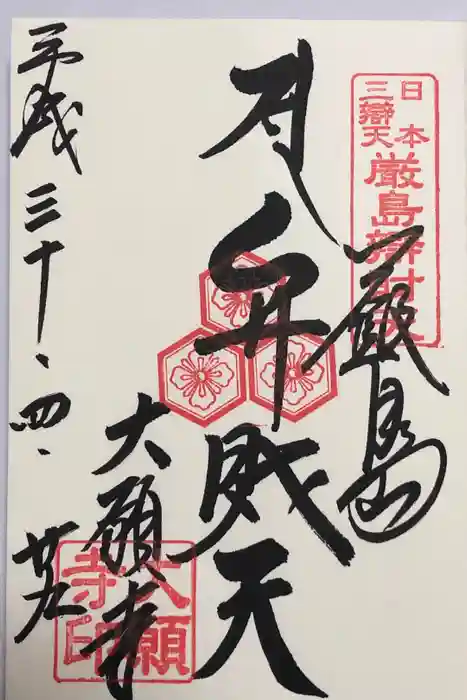 日本
三辯天
厳島辯財天
嚴島
弁財天
大願寺
大願
寺印
平成三十、四、廿九